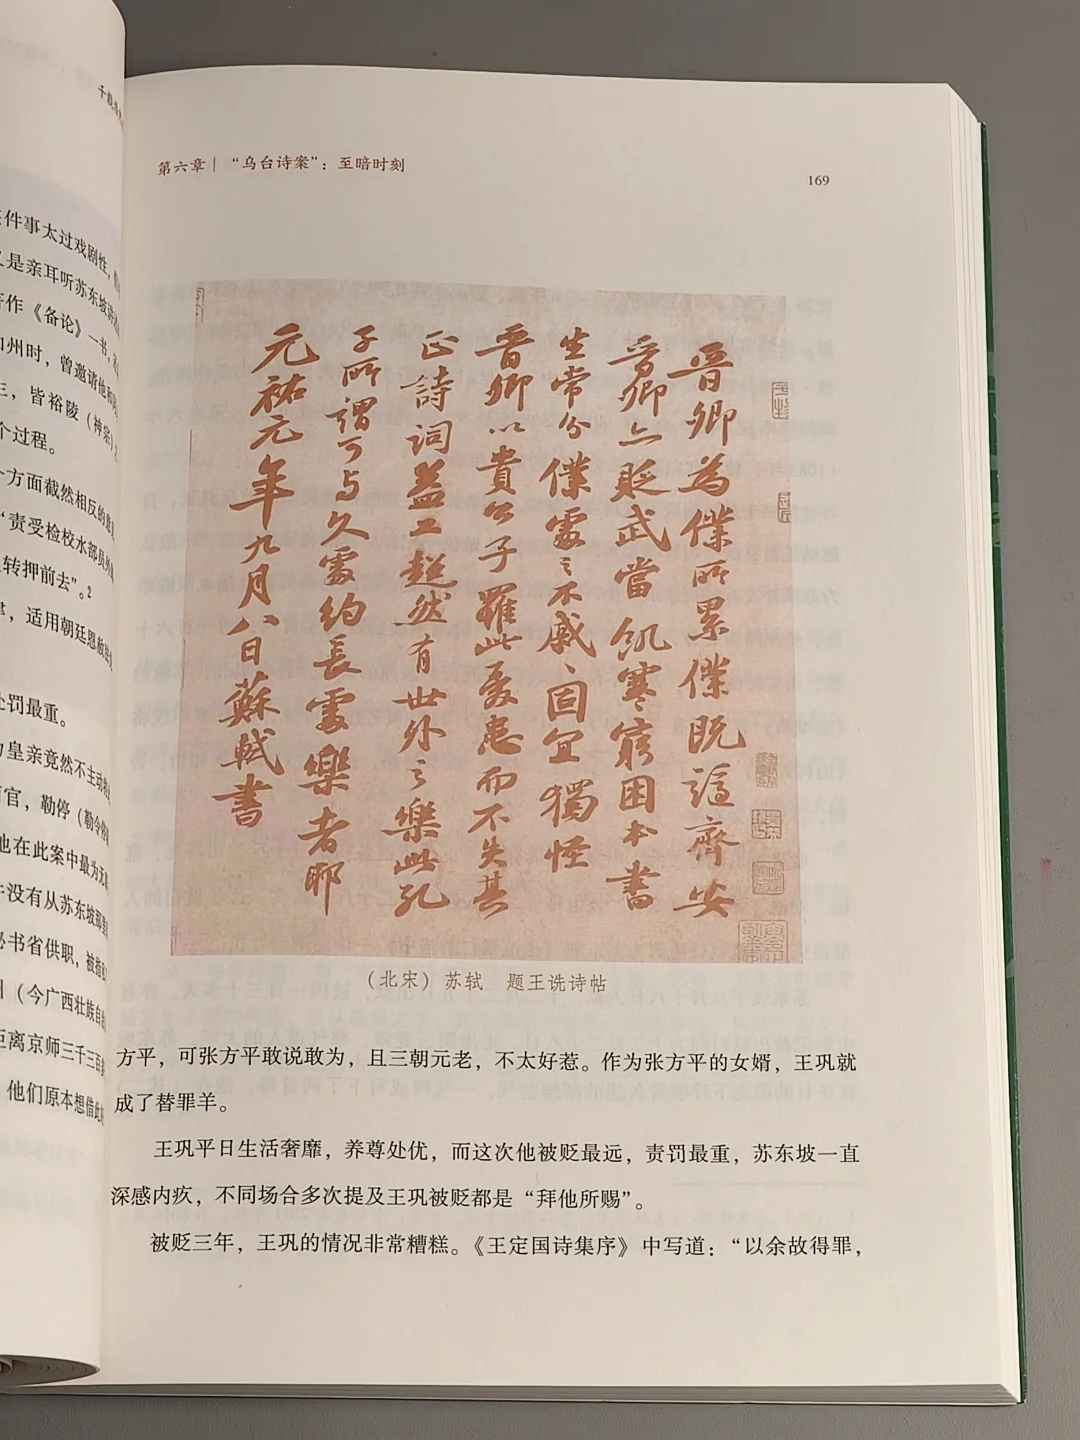 千载
件事太过戏剧性，
是亲耳听苏东坡
作《备论》一书，
州时，曾邀请他
三，皆裕陵（神宗）
个过程。
个方面截然相反的
“责受检校水部员
转押前去”。²
，适用朝廷恩赦
处罚最重。
皇亲竟然不主动
官，勒停（勒令停
他在此案中最为无
没有从苏东坡那里
秘书省供职，被指
（今广西壮族自
距离京师三千三百
他们原本想借此
第六章｜“乌台诗案”：至暗时刻
169
晉卿為僕所累僕既謫齊安
晉卿亦貶武當飢寒窮困本書
生常分僕處之不戚戚固宜獨怪
晉卿以貴公子罹此憂患而不失其
正詩詞益工超然有世外之樂此孔
子所謂可与久處約長處樂者耶
元祐元年九月八日蘇軾書
（北宋）苏轼　题王诜诗帖
方平，可张方平敢说敢为，且三朝元老，不太好惹。作为张方平的女婿，王巩就
成了替罪羊。
王巩平日生活奢靡，养尊处优，而这次他被贬最远，责罚最重，苏东坡一直
深感内疚，不同场合多次提及王巩被贬都是“拜他所赐”。
被贬三年，王巩的情况非常糟糕。《王定国诗集序》中写道：“以余故得罪，